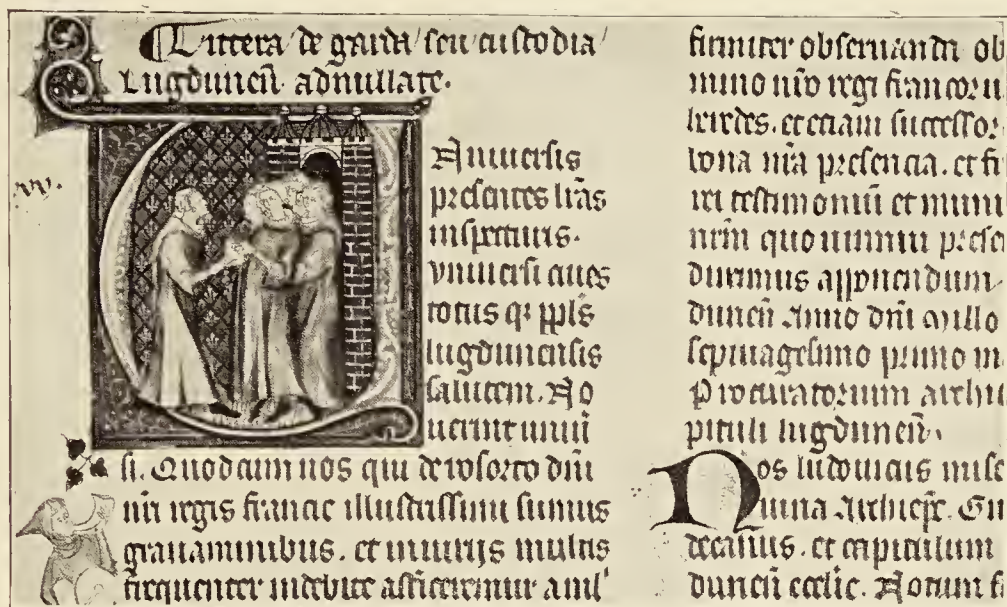 Littera de garda seu custodia
Lugdunen̄ adnullate.
xv.
Vniuersis
presentes lr̄as
inspecturis.
vniuersi ciues
totus q; ppl̄s
lugdunensis
salutem. No
uerint uniu
si. Quod cum nos qui de ressorto dn̄i
nr̄i regis francie illustrissimi sumus
grauaminibus. et iniurijs multis
frequenter indebite afficeremur a nil̄
firmiter obseruandā ob
mino nr̄o regi francoru
heredes. et etiam successor
bona nr̄a presencia. et fi
rei testimoniū et muni
nr̄m quo unimur prese
duximus apponendum
dunen̄ Anno dn̄i millo
septuagesimo primo m
Procuratorium archi
pituli lugdunen̄.
Nos ludouicus mise
diuina Archiep̄c. Gu
decanus. et capitulum
dunen̄ eccl̄ie. Notum f